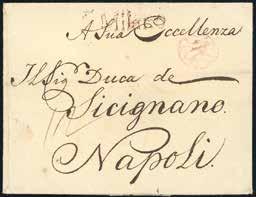 Milano
A Sua Eccellenza
Il Sig Duca de
Sicignano
Napoli.